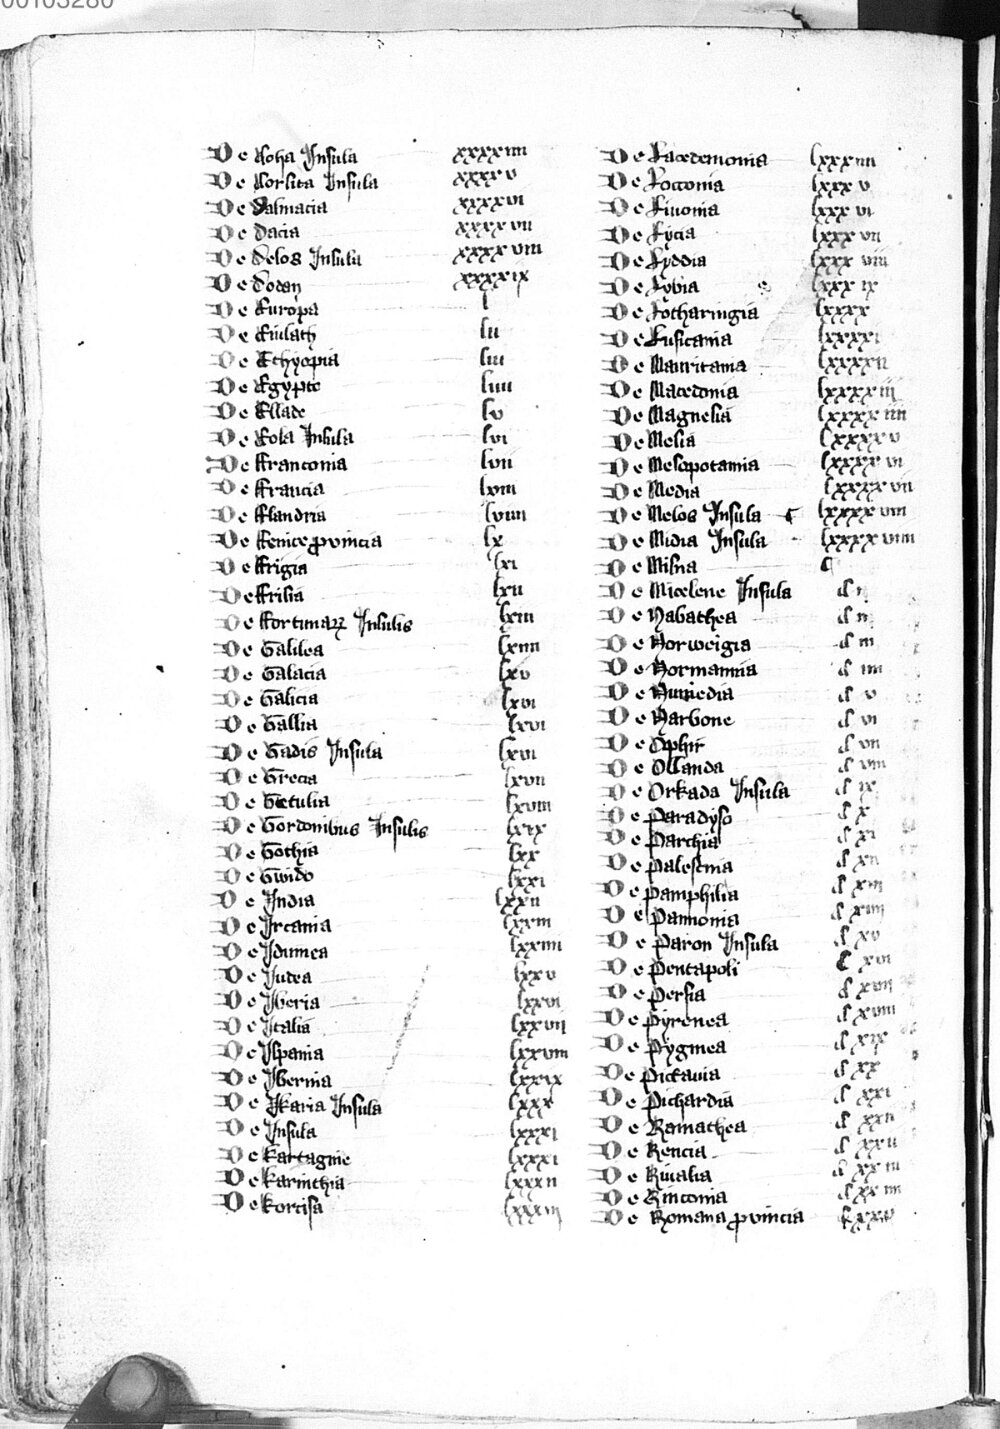 00103280
De Coha Insula xxxxiiii
De Corsica Insula xxxxv
De Dalmacia xxxxvi
De Dacia xxxxvii
De Delos Insula xxxxviii
De Dodan xxxxix
De Europa l
De Eiulath lii
De Ethyopia liii
De Egypto liiii
De Ellade lv
De Eola Insula lvi
De Franconia lvii
De Francia lviii
De Flandria lviiii
De Fenice provincia lx
De Frigia lxi
De Frisia lxii
De Fortunatarum Insulis lxiii
De Galilea lxiiii
De Galacia lxv
De Galicia lxvi
De Gallia lxvi
De Gadis Insula lxvi
De Grecia lxvii
De Getulia lxviii
De Gordonibus Insulis lxix
De Gothia lxx
De Gwido lxxi
De India lxxii
De Ircania lxxiii
De Idumea lxxiiii
De Iudea lxxv
De Iberia lxxvi
De Italia lxxvii
De Ispania lxxviii
De Ibernia lxxix
De Ikaria Insula lxxx
De Insula lxxxi
De Kartagine lxxxi
De Karinthia lxxxii
De Kortisa lxxxiii
De Lacedemonia lxxxiiii
De Loctonia lxxxv
De Liuonia lxxxvi
De Lycia lxxxvii
De Lyddia lxxxviii
De Lybia lxxxix
De Lotharingia lxxxx
De Lusitania lxxxxi
De Mauritania lxxxxii
De Macedonia lxxxxiii
De Magnesia lxxxxiiii
De Mesia lxxxxv
De Mesopotamia lxxxxvi
De Media lxxxxvii
De Melos Insula lxxxxviii
De Midia Insula lxxxxviiii
De Misna C
De Micelene Insula
De Nabathea
De Norweigia c iii
De Normannia c iiii
De Numedia c v
De Narbone c vi
De Ophir c vii
De Ollanda c viii
De Orkada Insula c ix
De Paradyso c x
De Parthia c xi
De Palestina c xii
De Pamphilia c xiii
De Pannonia c xiiii
De Paron Insula c xv
De Pentapoli C xvi
De Persia c xvii
De Pyrenea c xviii
De Pygmea c xix
De Pictauia c xx
De Pichardia c xxi
De Ramathea c xxii
De Rencia c xxii
De Riualia c xxiii
De Rinconia c xxiiii
De Romana provincia c xxv